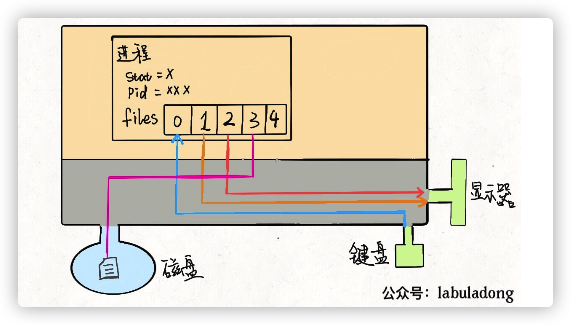 进程
Stat = X
Pid = XXX
files 0 1 2 3 4
显示器
键盘
磁盘
公众号：labuladong